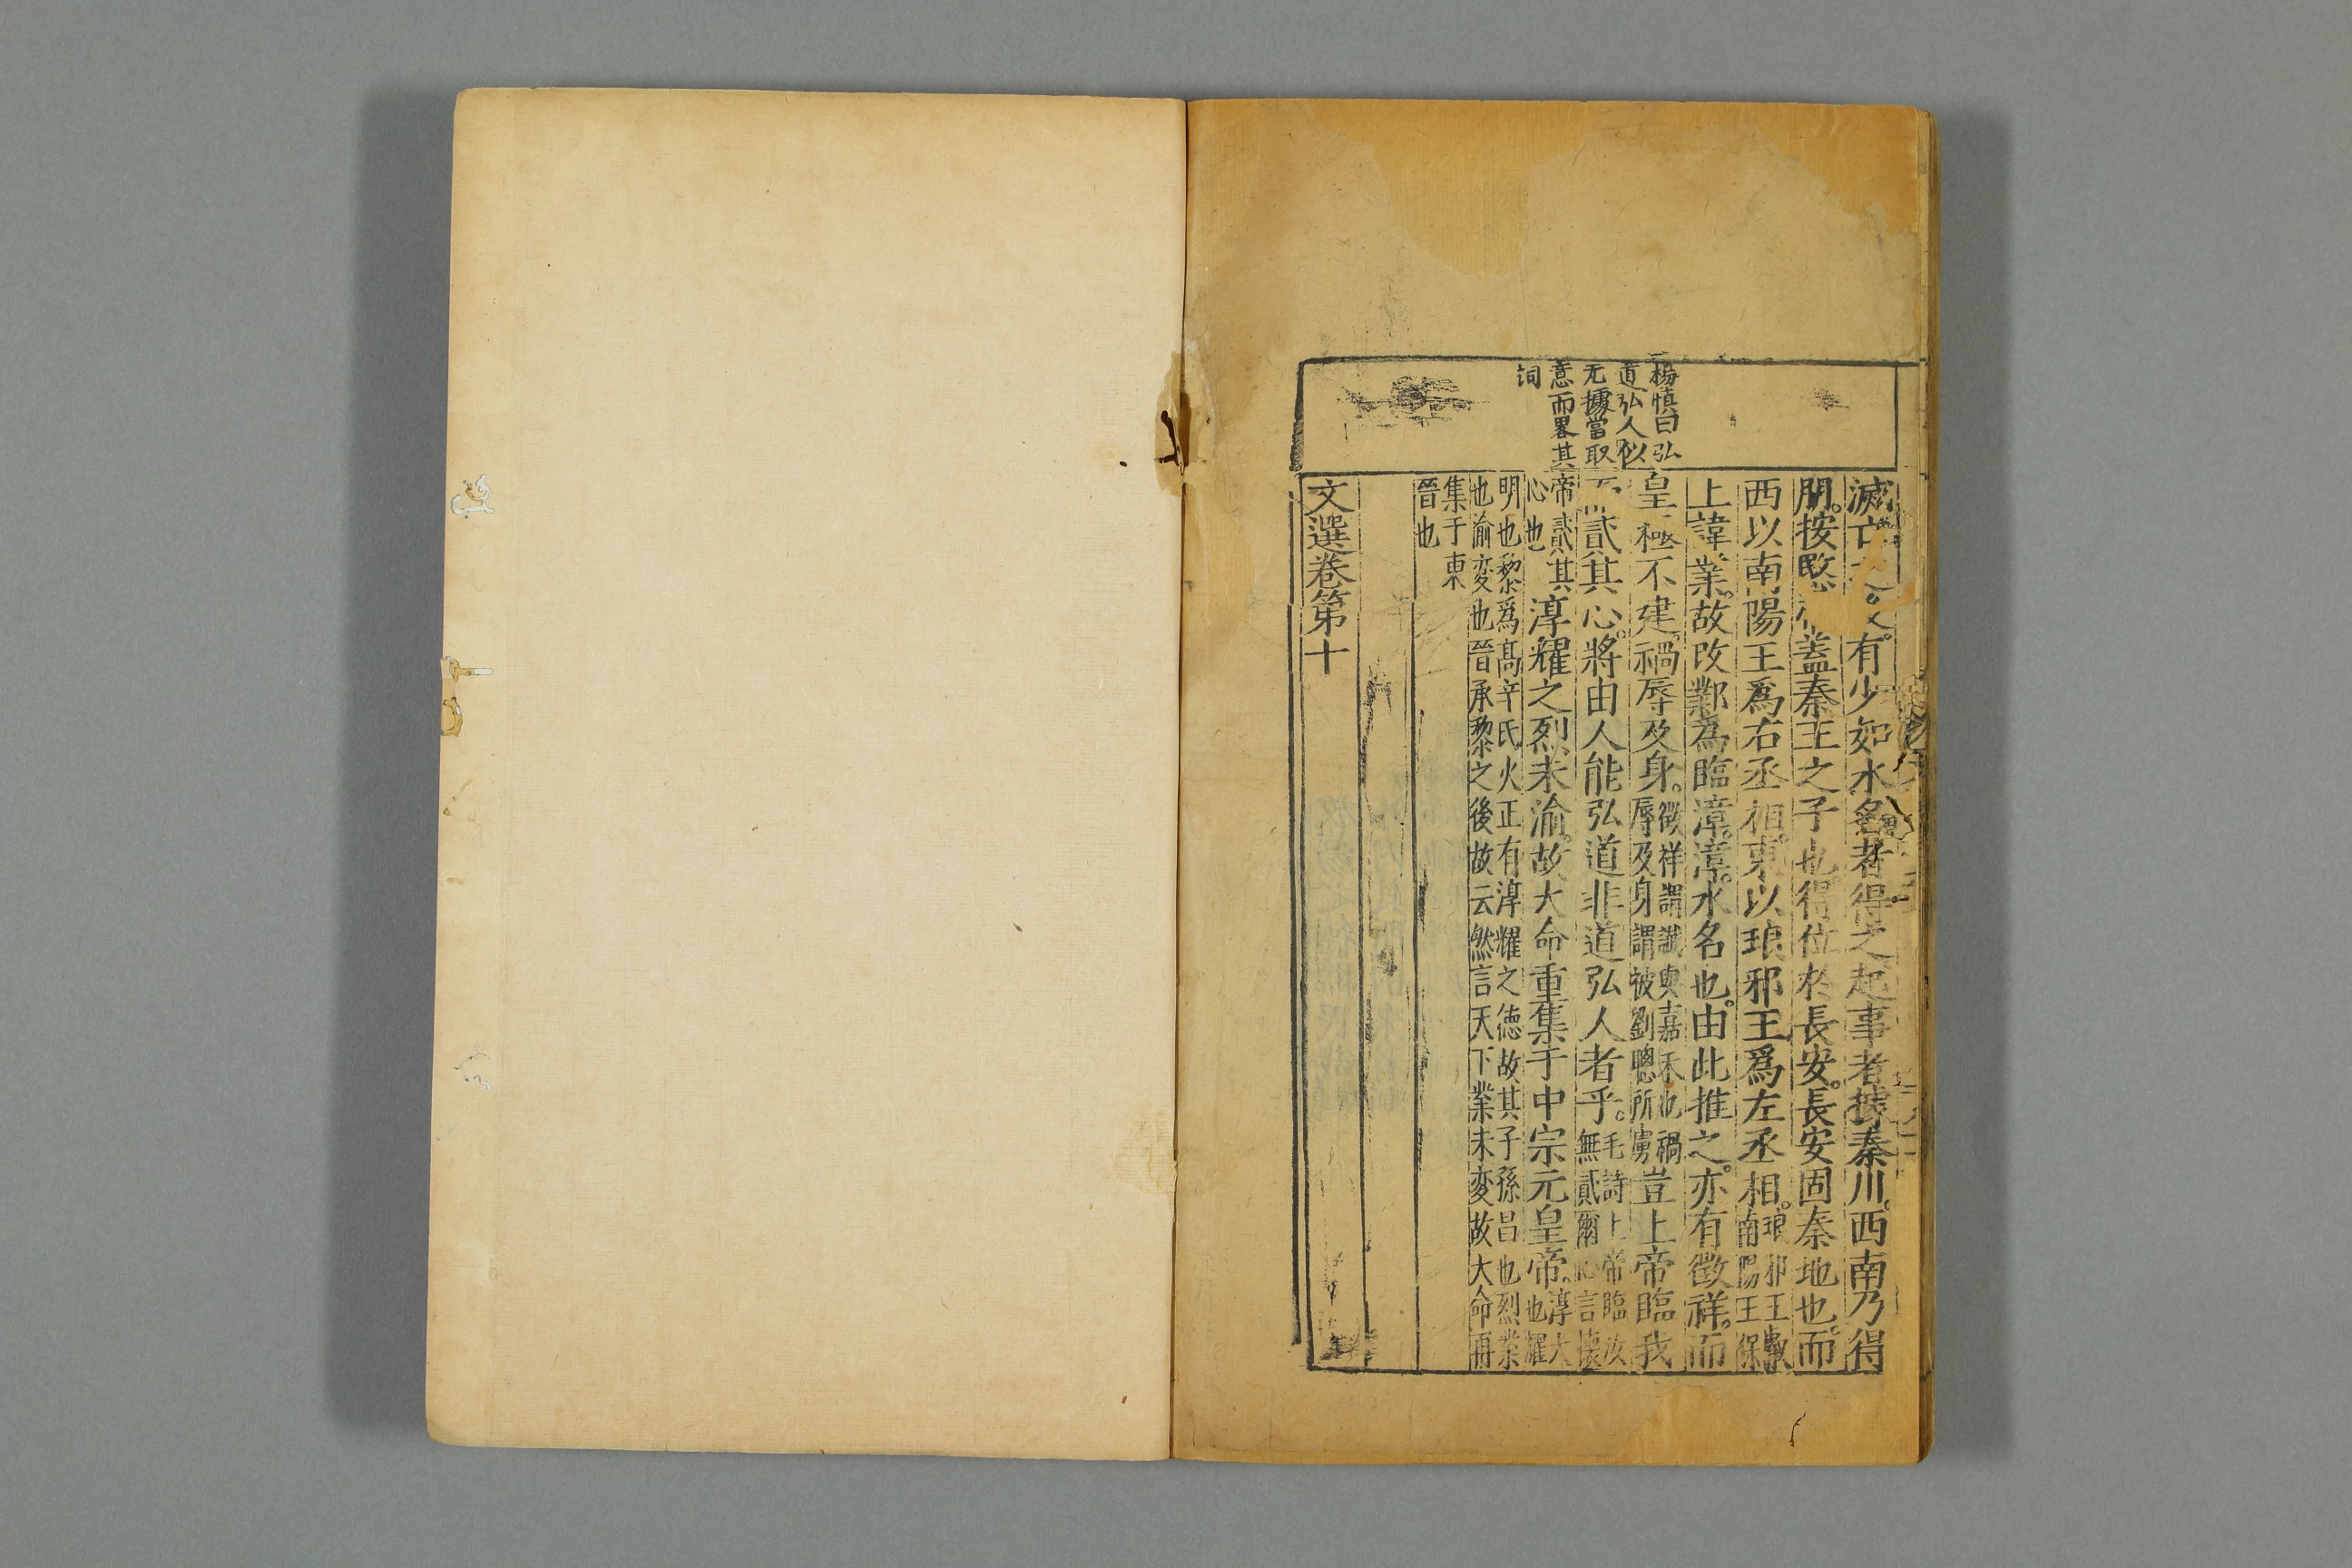 楊慎曰弘
道弘人似
无據當取
意而畧其
詞
滅亡 有少如水名者得之起事者據秦川。西南乃得
朋。按愍 蓋秦王之子也得位於長安。長安固秦地也。而
西以南陽王爲右丞相。東以琅邪王爲左丞相。琅邪王叡南陽王保
上諱業。故改鄴爲臨漳。漳。水名也。由此推之。亦有徵祥。而
皇極不建。禍辱及身。徵祥謂讖與嘉禾也禍辱及身謂被劉聰所虜豈上帝臨我
而貳其心。將由人能弘道非道弘人者乎。毛詩上帝臨汝無貳爾心言懷
帝貳其心也淳耀之烈未渝。故大命重集于中宗元皇帝。淳大也耀
明也黎爲高辛氏火正有淳耀之德故其子孫昌也烈業
也渝変也晉承黎之後故云然言天下業未変故大命再
集于東
晉也
文選卷第十